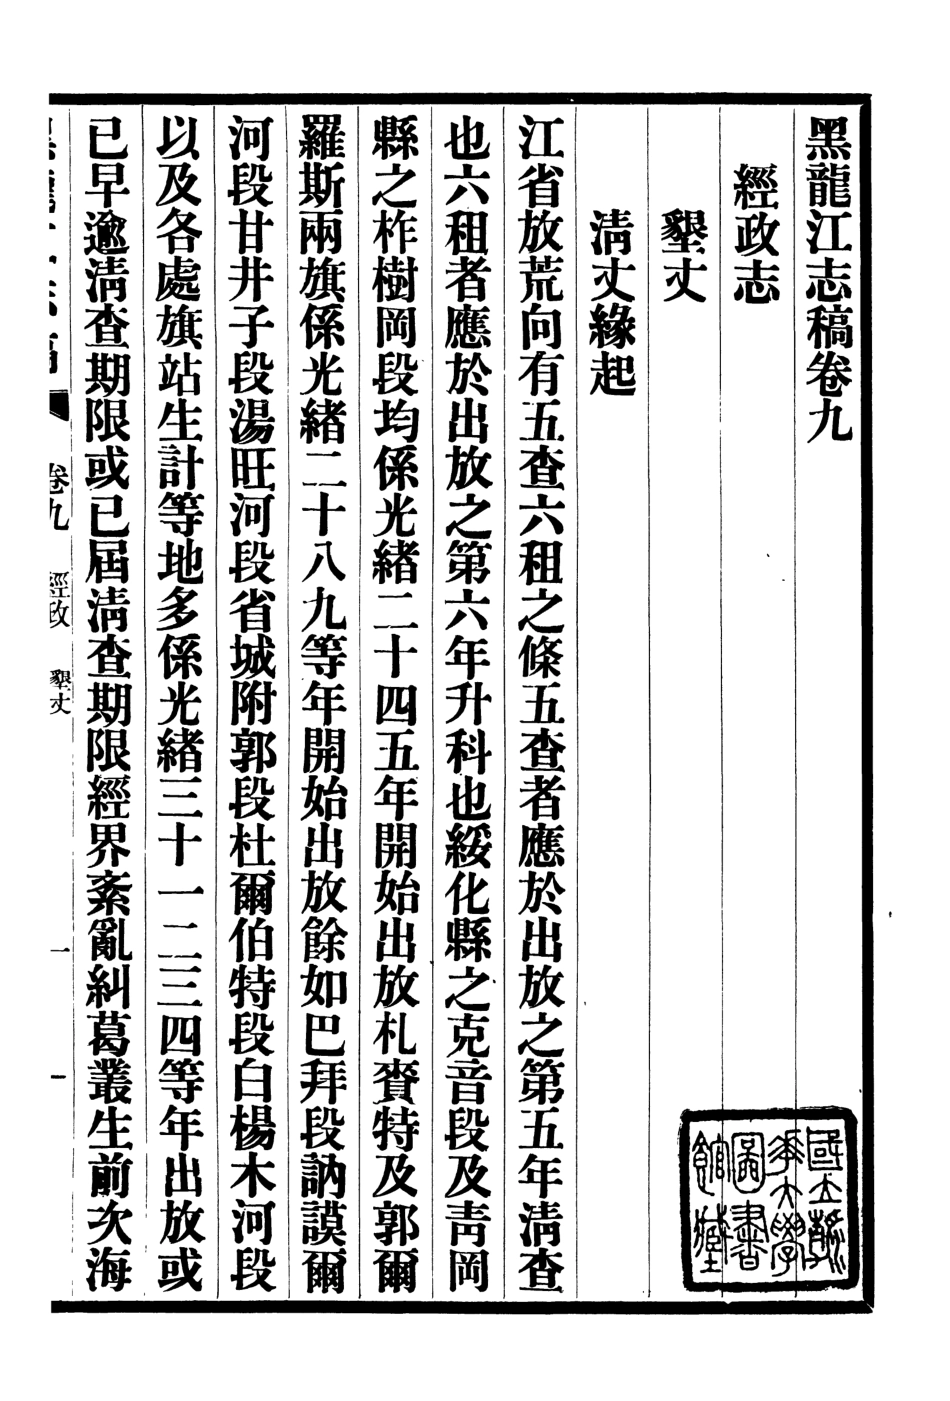 黑龍江志稿卷九
經政志
墾丈
淸丈緣起
江省放荒向有五查六租之條五查者應於出放之第五年淸查
也六租者應於出放之第六年升科也綏化縣之克音段及靑岡
縣之柞樹岡段均係光緖二十四五年開始出放札賚特及郭爾
羅斯兩旗係光緖二十八九等年開始出放餘如巴拜段訥謨爾
河段甘井子段湯旺河段省城附郭段杜爾伯特段白楊木河段
以及各處旗站生計等地多係光緖三十一二三四等年出放或
已早逾淸查期限或已屆淸查期限經界紊亂糾葛叢生前次海
卷九 經政 墾丈 一
國立淸華大學圖書館藏